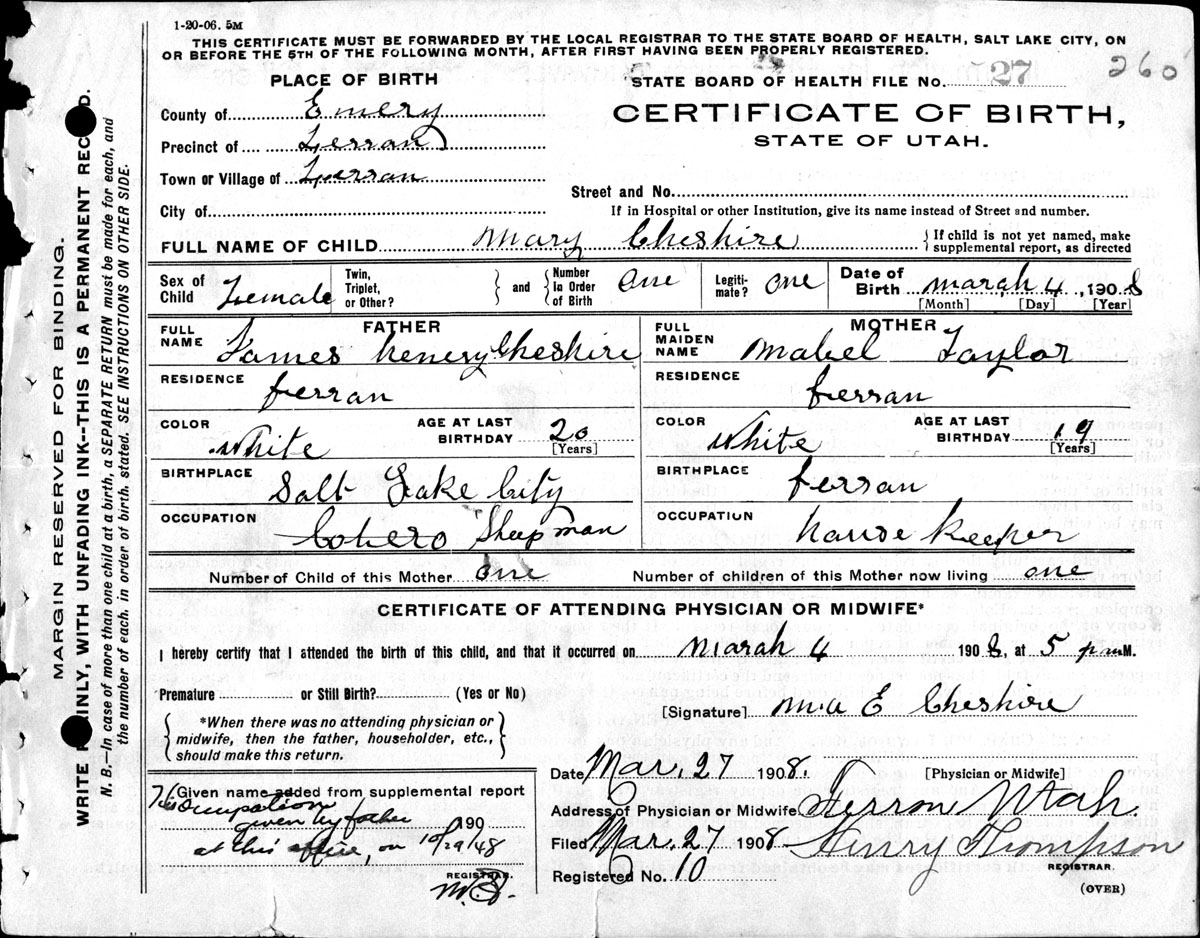 1-20-06. 5M
THIS CERTIFICATE MUST BE FORWARDED BY THE LOCAL REGISTRAR TO THE STATE BOARD OF HEALTH, SALT LAKE CITY, ON
OR BEFORE THE 5TH OF THE FOLLOWING MONTH, AFTER FIRST HAVING BEEN PROPERLY REGISTERED.
PLACE OF BIRTH
STATE BOARD OF HEALTH FILE No. 27 260
County of Emery
CERTIFICATE OF BIRTH,
Precinct of Ferran
STATE OF UTAH.
Town or Village of Ferran
Street and No.
City of
If in Hospital or other Institution, give its name instead of Street and number.
FULL NAME OF CHILD Mary Cheshire { If child is not yet named, make supplemental report, as directed
Sex of Child Female Twin, Triplet, or Other? } and { Number In Order of Birth one Legitimate? one Date of Birth march 4, 1908
[Month] [Day] [Year]
FATHER MOTHER
FULL NAME James henery Cheshire FULL MAIDEN NAME mabel Taylor
RESIDENCE ferran RESIDENCE ferran
COLOR White AGE AT LAST BIRTHDAY 20 [Years] COLOR White AGE AT LAST BIRTHDAY 19 [Years]
BIRTHPLACE Salt Lake City BIRTHPLACE ferran
OCCUPATION Sheep man OCCUPATION house Keeper
Number of Child of this Mother one Number of children of this Mother now living one
CERTIFICATE OF ATTENDING PHYSICIAN OR MIDWIFE*
I hereby certify that I attended the birth of this child, and that it occurred on marah 4 1908, at 5 pm M.
Premature or Still Birth? (Yes or No)
[Signature] E Cheshire
{ *When there was no attending physician or
midwife, then the father, householder, etc.,
should make this return. }
Date Mar. 27 1908. [Physician or Midwife]
Given name added from supplemental report
This Ocupation
given by father 190
at this office, on 10/29/48
REGISTRAR.
Address of Physician or Midwife Ferron Utah
Filed Mar. 27 1908 Henry Thompson
REGISTRAR.
Registered No. 10
(OVER)
MARGIN RESERVED FOR BINDING.
WRITE PLAINLY, WITH UNFADING INK--THIS IS A PERMANENT RECORD.
N. B.—In case of more than one child at a birth, a SEPARATE RETURN must be made for each, and
the number of each, in order of birth, stated. SEE INSTRUCTIONS ON OTHER SIDE.